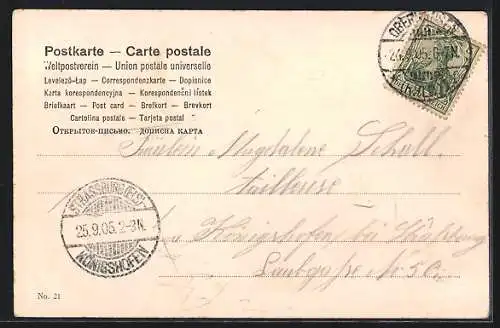 Postkarte — Carte postale
Weltpostverein — Union postale universelle
Levelező-Lap — Correspondenzkarte — Dopisnice
Karta korespondencyjna — Korespondenční lístek
Briefkaart — Post card — Brefkort — Brevkort
Cartolina postale — Tarjeta postal
Открытое-письмо. дописна карта
Fräulein Magdalene Schall
Tailleuse
Königshofen bei Straßburg
Laubgaße Nr. 5
STRASSBURG (ELS)
25.9.05. 2-3N.
KÖNIGSHOFEN
No. 21